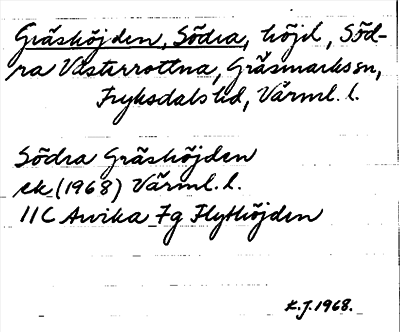 Gräshöjden, Södra, höjd, Söd-
ra Västerrottna, Gräsmarks sn,
Fryksdals hd, Värml. l.
Södra Gräshöjden
ek (1968) Värml. l.
11C Arvika 7g Flythöjden
K.J. 1968.